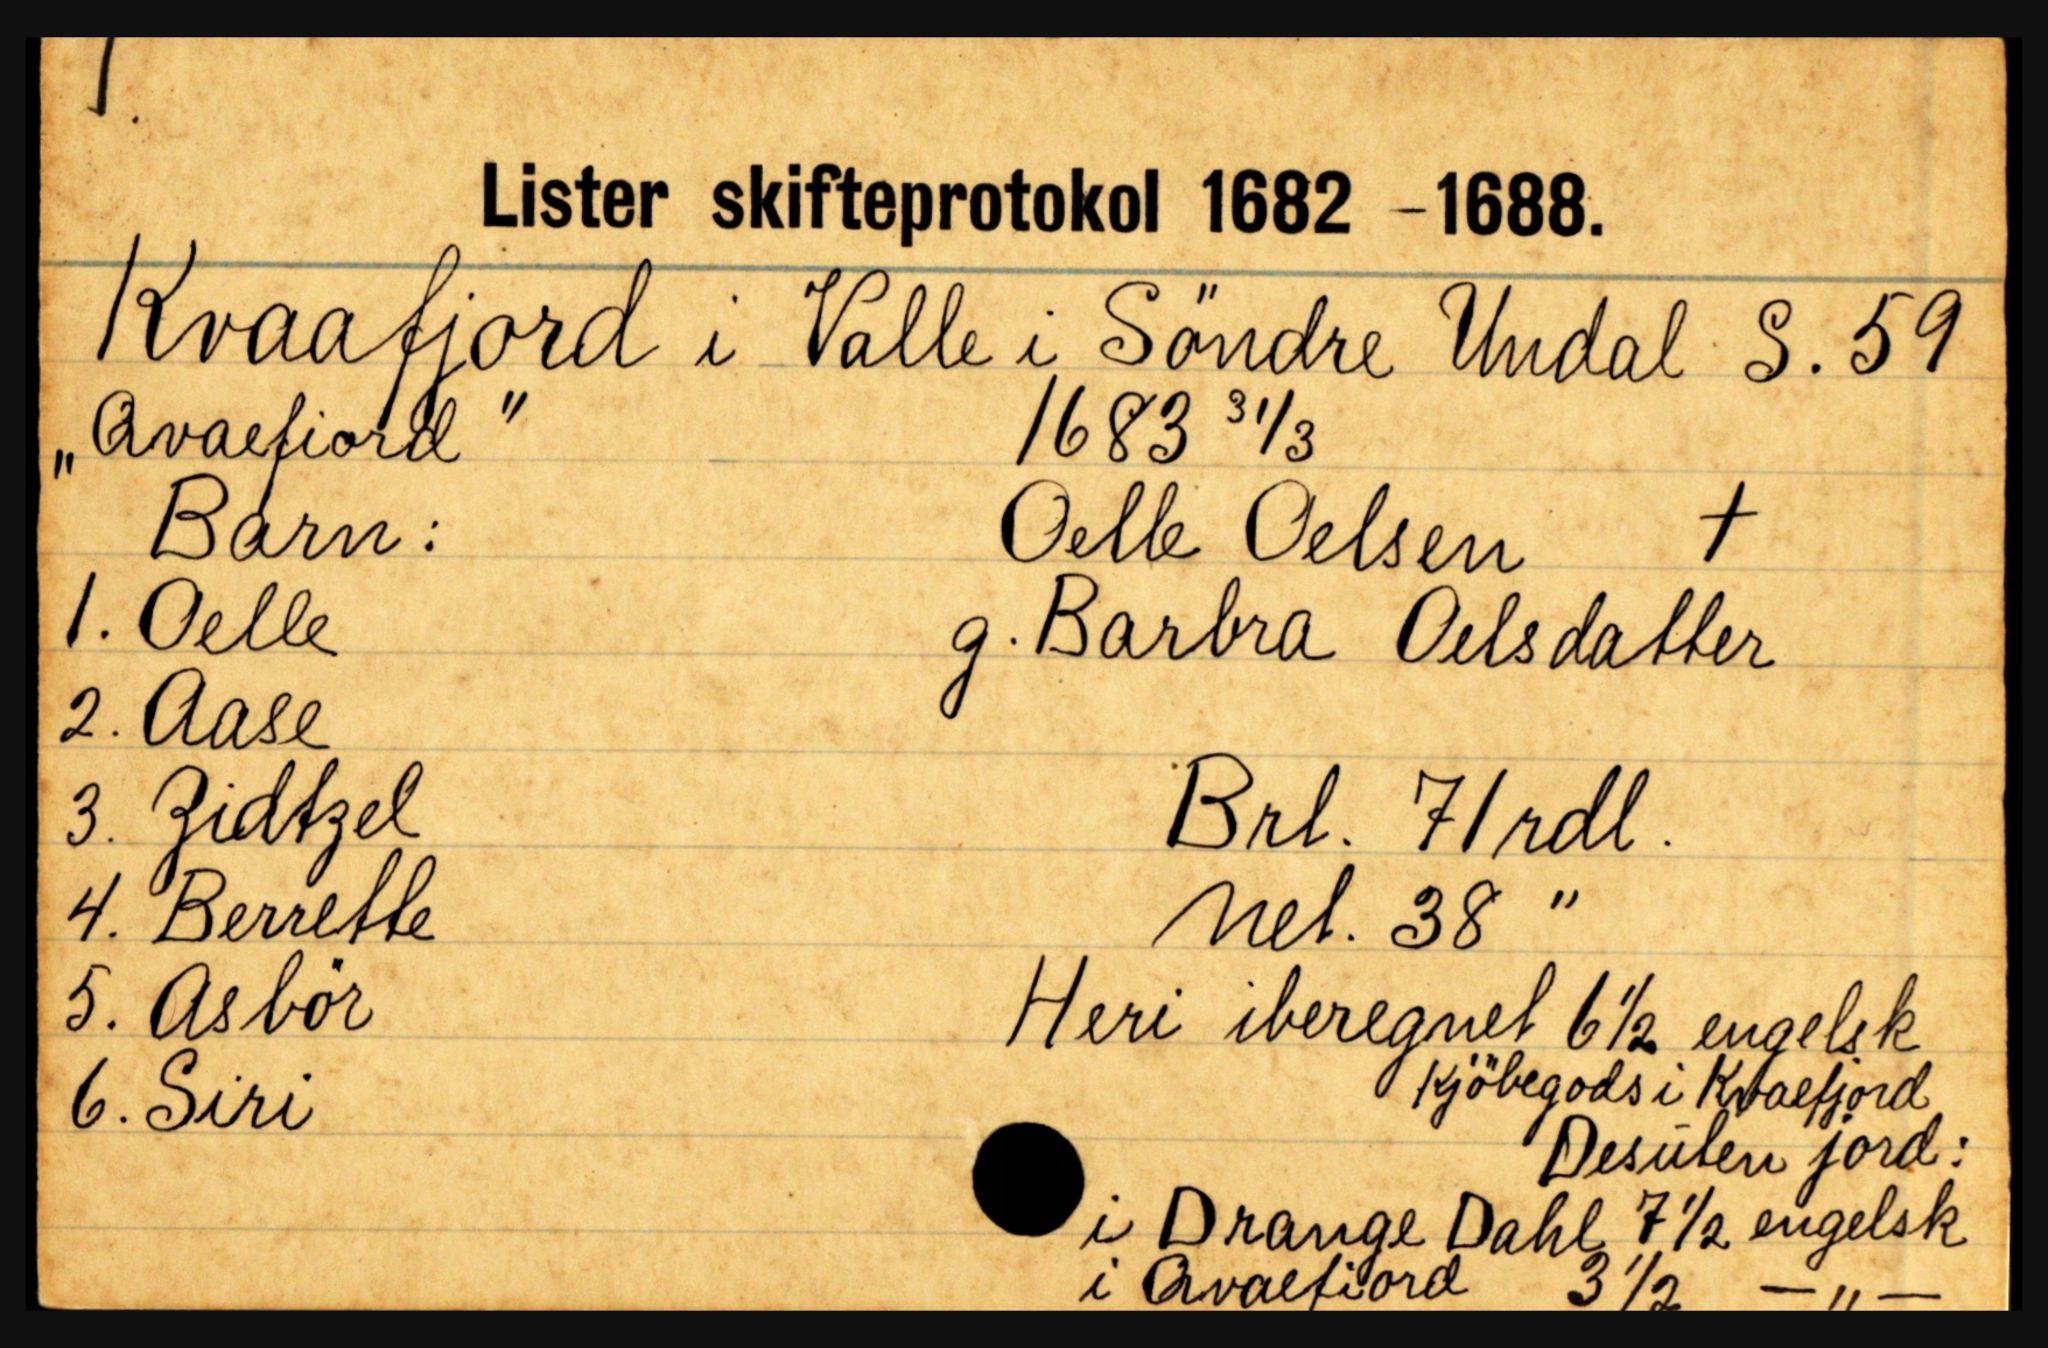 1.
Lister skifteprotokol 1682 - 1688.
Kvaafjord i Valle i Söndre Undal S. 59
„Qvaefiord" 1683 31/3
Barn: Oelle Oelsen †
1. Oelle g. Barbra Oelsdatter
2. Aase
3. Zidtzel Brt. 71 rdl.
4. Berrette Net. 38 "
5. Asbör Heri iberegnet 6 1/2 engelsk
kjöbegods i Kvaefjord
6. Siri
Desuten jord:
i Drange Dahl 7 1/2 engelsk
i Qvaefiord 3 1/2 — „ —